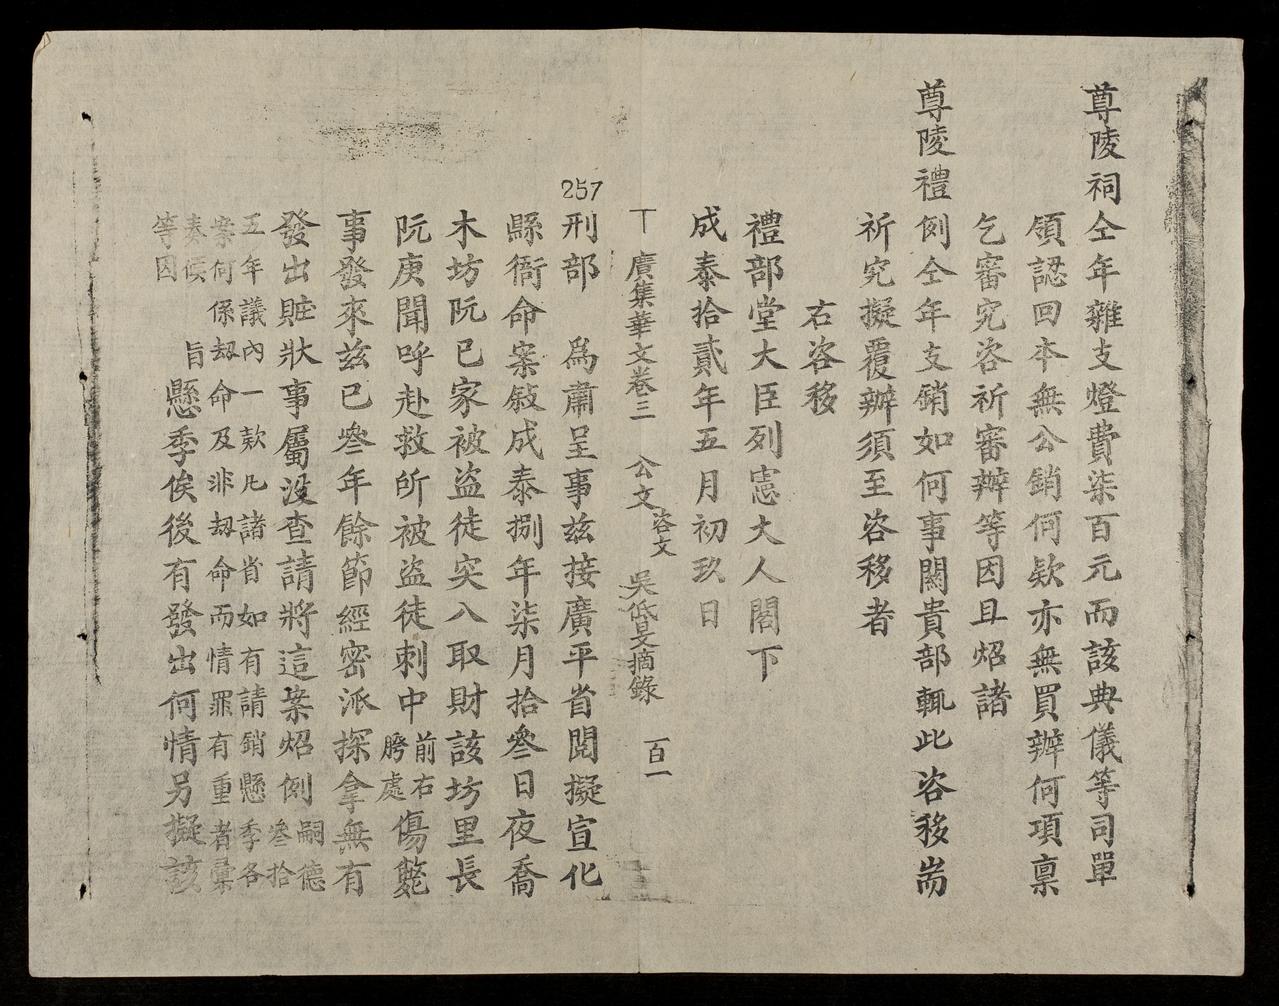 尊陵祠仝年雜支燈費柒百元而該典儀等司單
領認回本無公銷何欵亦無買辦何項稟
乞審究咨祈審辦等因且炤諸
尊陵禮例仝年支銷如何事關貴部輒此咨移耑
祈究擬覆辦須至咨移者
右咨移
禮部堂大臣列憲大人閣下
成泰拾貳年五月初玖日
丅 廣集華文卷三 公文 咨文 吳低旻摘錄 百一
257
刑部 爲肅呈事玆接廣平省閱擬宣化
縣衙命案敍成泰捌年柒月拾叄日夜喬
木坊阮已家被盜徒突入取財該坊里長
阮庚聞呼赴救所被盜徒刺中前右胯處傷斃
事發來玆已叄年餘節經密派探拿無有
發出賍狀事屬没查請將這案炤例嗣德叄拾
五年議內一款凡諸省如有請銷懸季各
案何係刼命及非刼命而情罪有重者彙
奏候
旨
等因
懸季俟後有發出何情另擬該